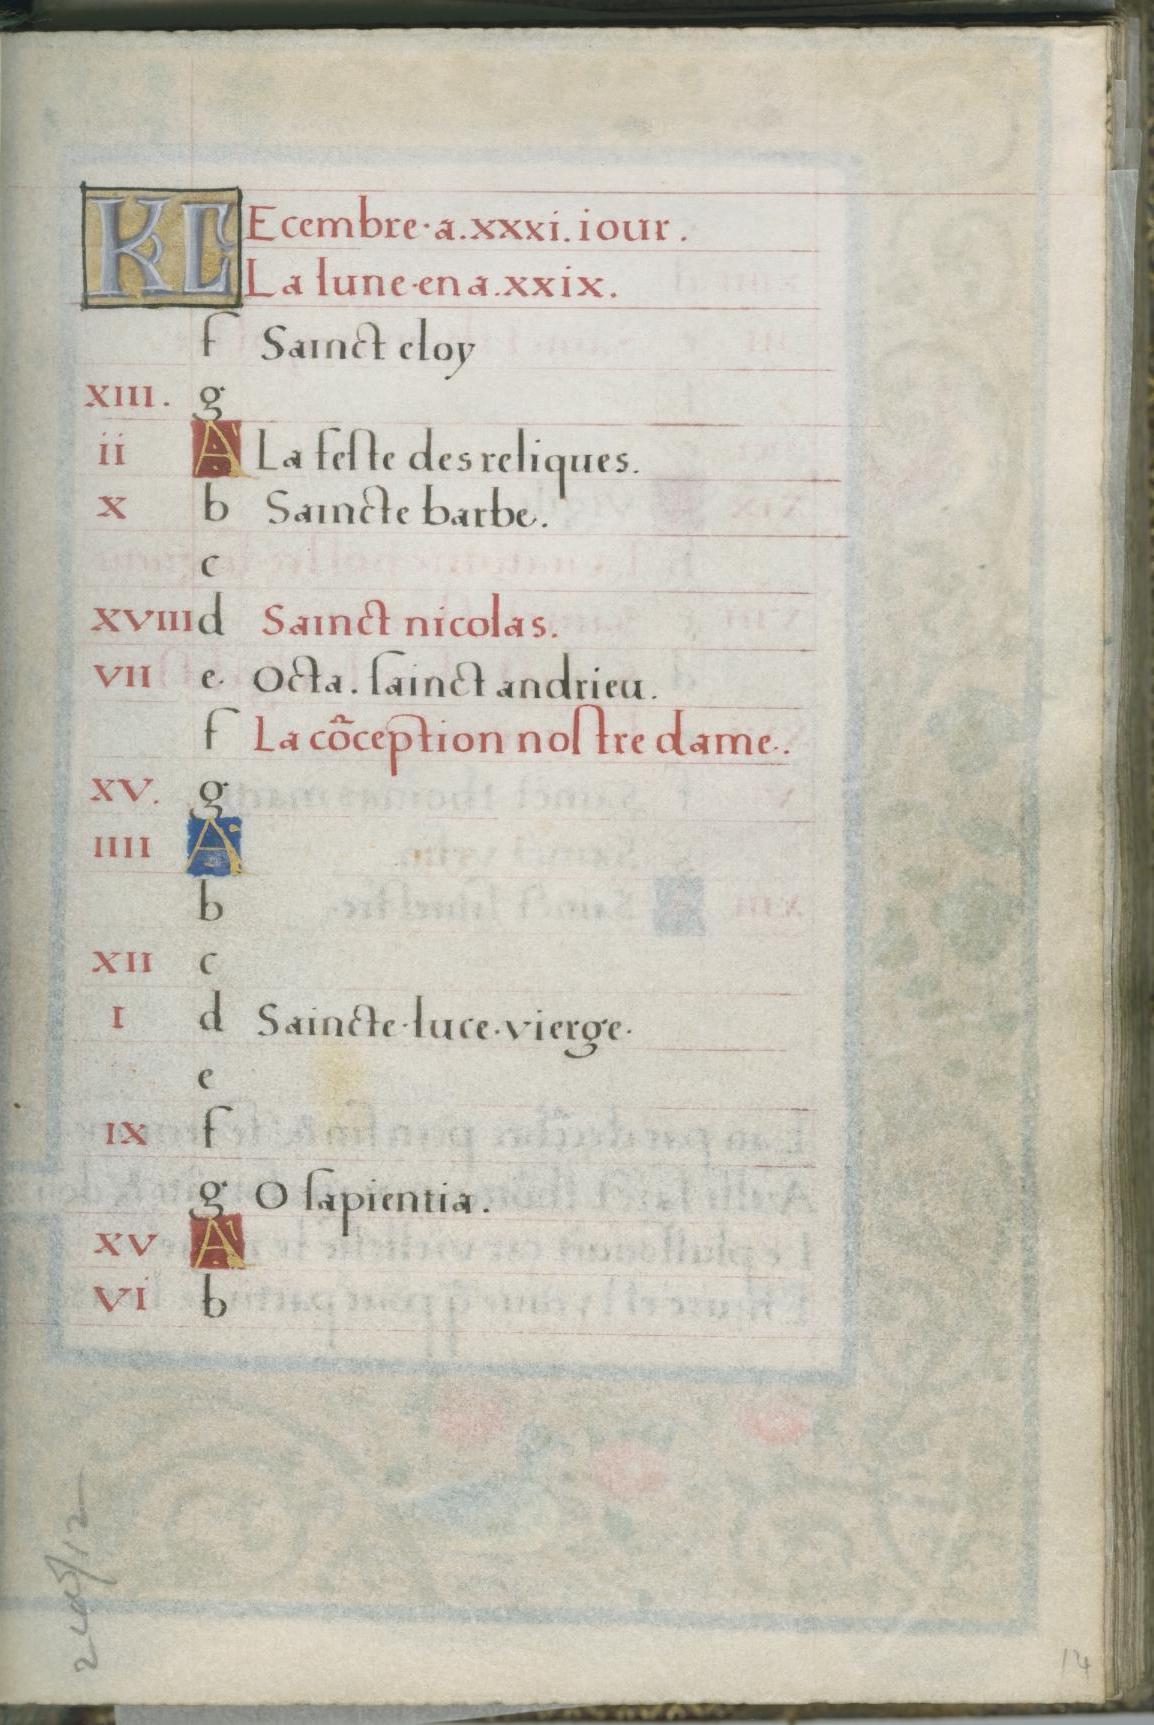 KL Ecembre·a.xxxi.iour.
La lune·en a.xxix.
f Sainct eloy
XIII. g
ii A La feſte des reliques.
X b Saincte barbe.
c
XVIII d Sainct nicolas.
VII e· Octa. ſainct andrieu.
f La cõception noſtre dame.
XV. g
IIII A
b
XII c
I d Saincte·luce·vierge·
e
IX f
g O ſapientia.
XV A
VI b
14